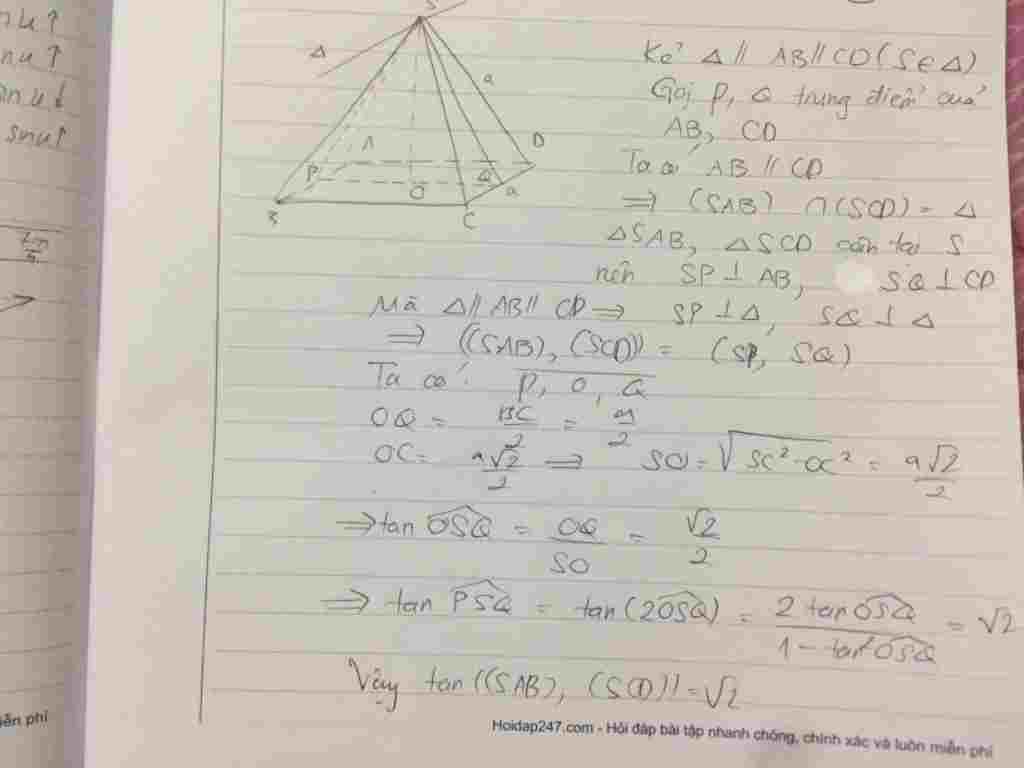 nu↑
nu↑
nu↓
snu↑
iễn phí
S
Δ
a
A
D
P
Q
a
O
B
C
Kẻ Δ // AB // CD (S∈Δ)
Gọi P, Q trung điểm của
AB, CD
Ta có AB // CD
⇒ (SAB) ∩ (SCD) = Δ
ΔSAB, ΔSCD cân tại S
nên SP ⊥ AB, SQ ⊥ CD
Mà Δ // AB // CD ⇒ SP ⊥ Δ, SQ ⊥ Δ
⇒ ((SAB), (SCD)) = (SP, SQ)
Ta có: P, O, Q
OQ = BC/2 = a/2
OC = a√2/2 ⇒ SO = √SC²-OC² = a√2/2
⇒ tan OSQ = OQ/SO = √2/2
⇒ tan PSQ = tan(2OSQ) = 2 tan OSQ / 1 - tan² OSQ = √2
Vậy tan ((SAB), (SCD)) = √2
Hoidap247.com - Hỏi đáp bài tập nhanh chóng, chính xác và luôn miễn phí